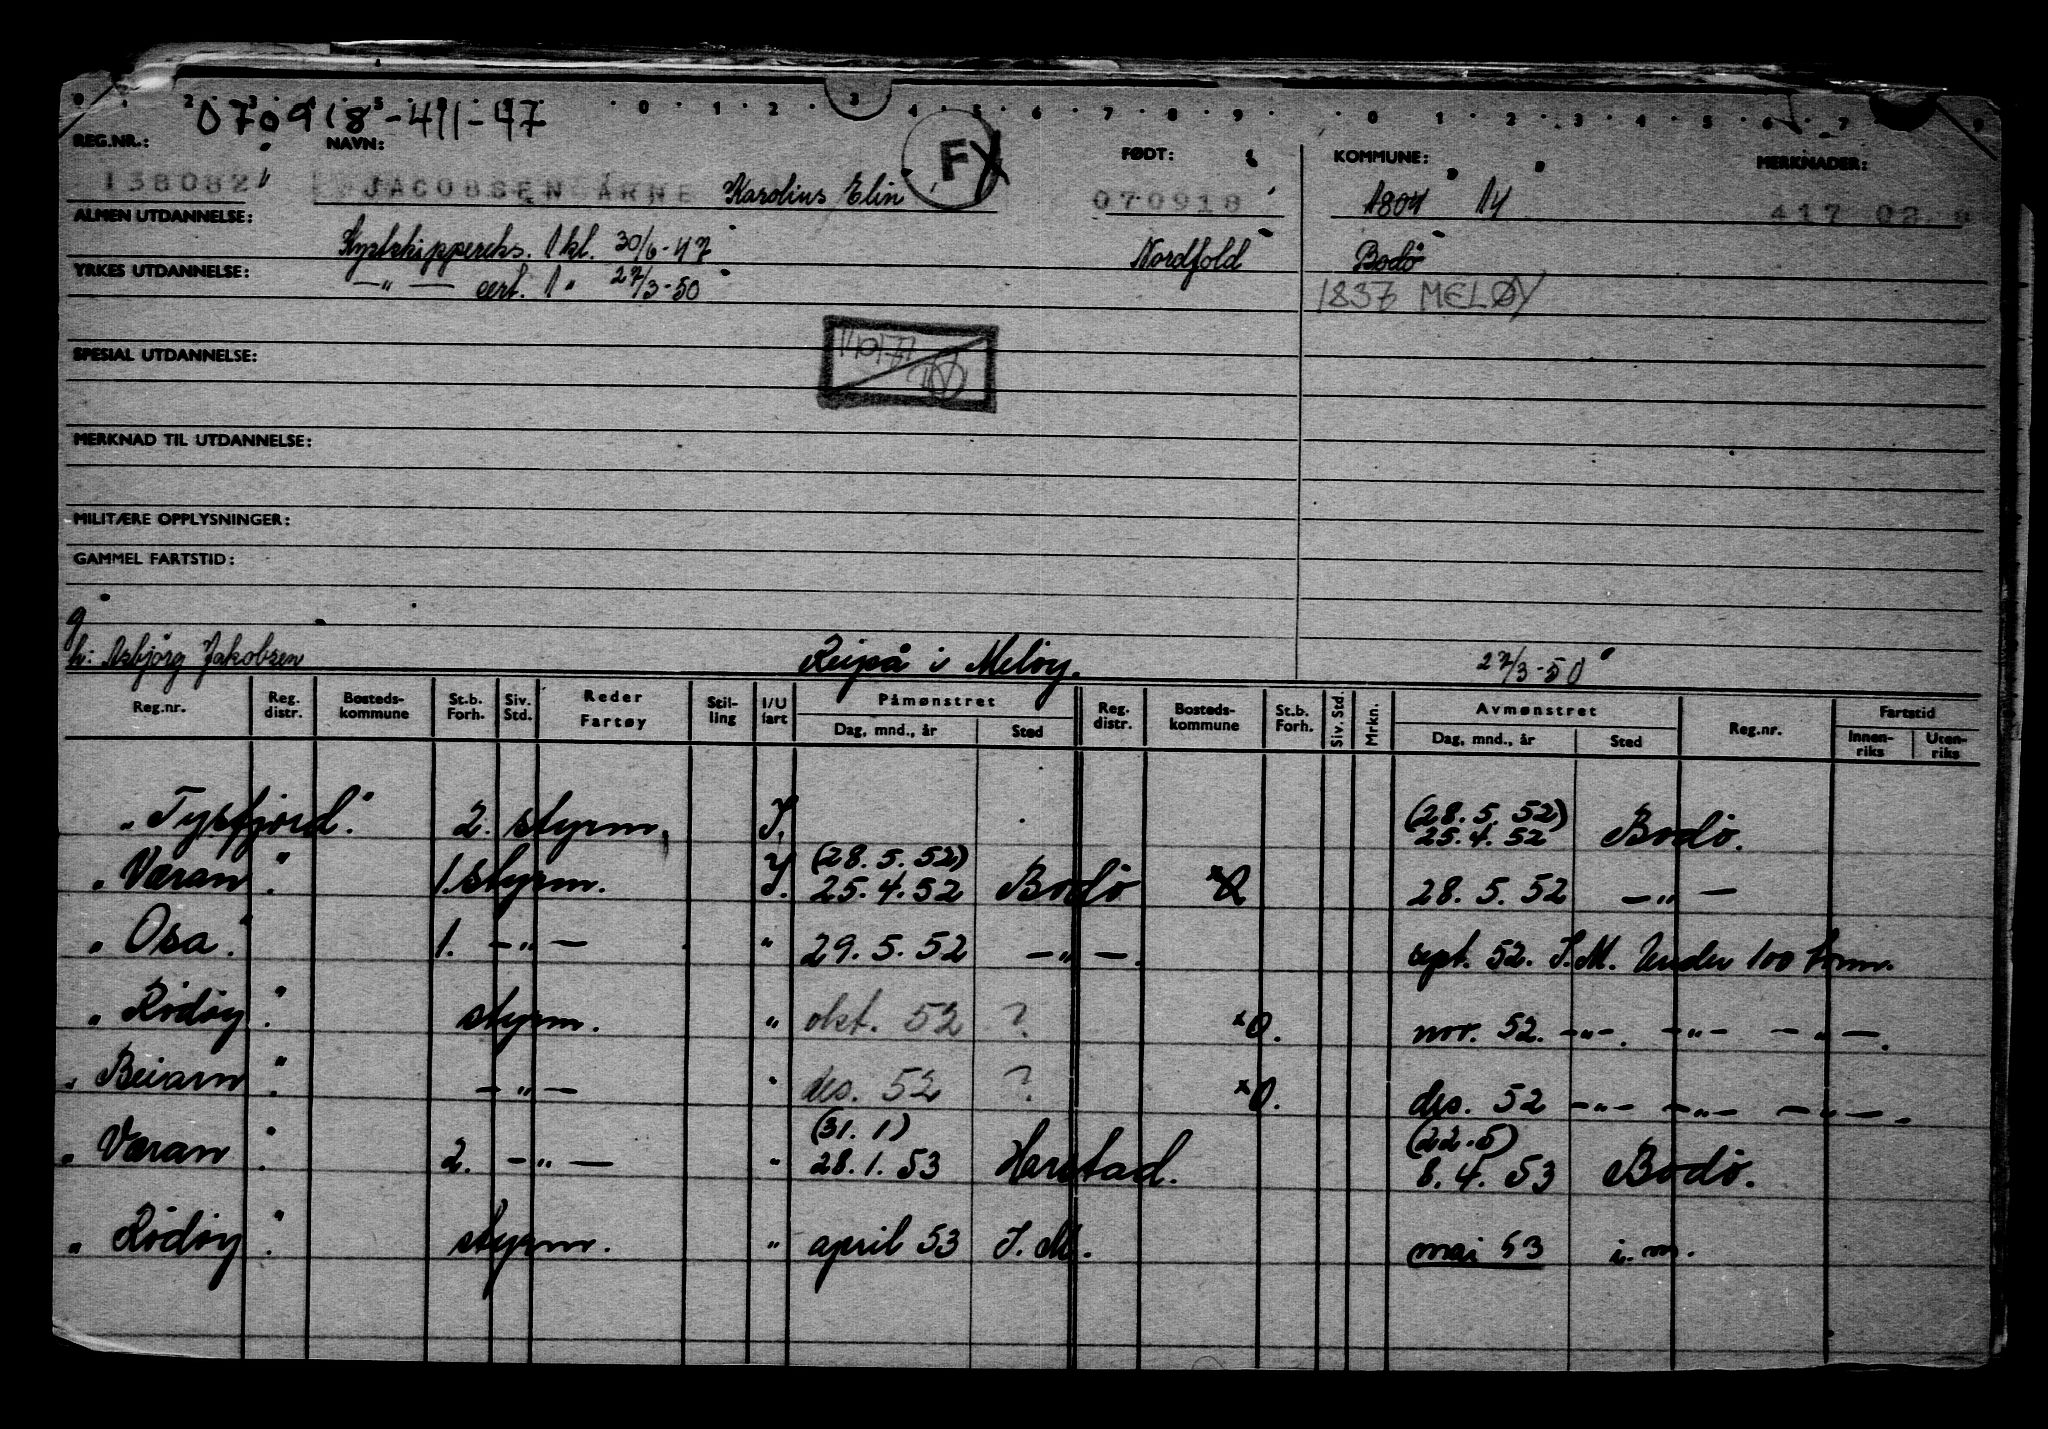 0 1 2 3 4 5 6 7 8 9 0 1 2 3 4 5 6 7 9
070918-411-47
REG.NR.: NAVN: FØDT: KOMMUNE: MERKNADER:
138082 JACOBSEN ARNE Karolius Elin F 070918 1804 14 417 02
ALMEN UTDANNELSE: Kystskippereks. 1 kl. 30/6-47 Nordfold Bodö
YRKES UTDANNELSE: —„— cert. 1 „ 27/3-50 1837 MELØY
SPESIAL UTDANNELSE:
MERKNAD TIL UTDANNELSE:
MILITÆRE OPPLYSNINGER:
GAMMEL FARTSTID:
g
h: Asbjörg Jakobsen Reipå i Melöy. 27/3-50
Reg.nr. Reg. distr. Bosteds-kommune St.b. Forh. Siv. Std. Reder Fartøy Stil-ling I/U fart Påmønstret Dag, mnd., år Sted Reg. distr. Bosteds-kommune St.b. Forh. Siv. Std. Mrkn. Avmønstret Dag, mnd., år Sted Reg.nr. Fartstid Innen-riks Uten-riks
(28.5.52)
„Tysfjord." 2. styrm. I. 25.4.52 Bodö.
(28.5.52)
„Væran". 1. styrm. I. 25.4.52 Bodö x0 28.5.52 —„—
„Osa." 1. —„— „ 29.5.52 —„—. sept. 52. I.M. Under 100 tonn.
„Rödöy". styrm. „ okt. 52 ? x0. nov. 52. —„—. —„— —„—.
„Beiarn". —„— „ des. 52 ? x0. des. 52 —„— —„— —„—.
(31.1) (22.5)
„Væran". 2. —„— „ 28.1.53 Harstad. 8.4.53 Bodö.
„Rödöy". styrm. „ april 53 I.M. mai 53 i.m.